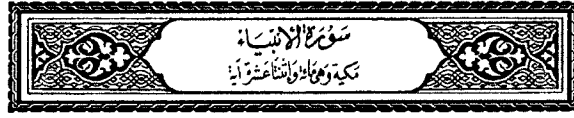 سورة الأنبياء
مكية وهي مائة واثنتا عشرة آية